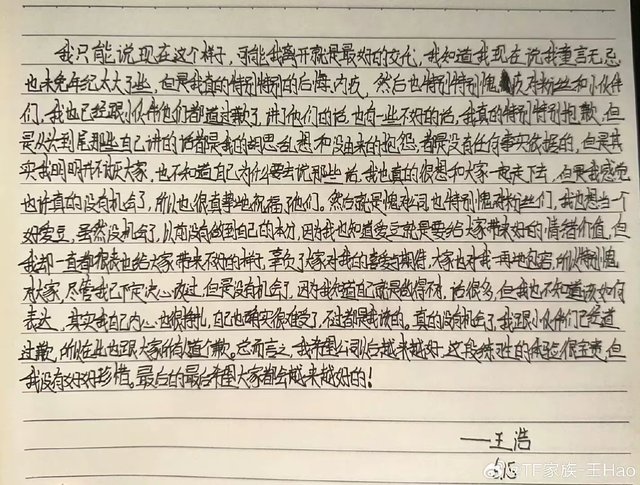 我只能说现在这个样子，可能我离开就是最好的交代，我知道我现在说我童言无忌
也未免年纪太大了些，但是我真的特别特别的后悔、内疚，然后也特别特别愧疚对粉丝和小伙伴
们，我也已经跟小伙伴他们都道过歉了，讲了他们的话，也有一些不好的话，我真的特别特别抱歉，但
是从头到尾那些自己讲的话都是我的胡思乱想和没由来的抱怨，都是没有任何事实依据的，但是其
实我明明并不讨厌大家，也不知道自己为什么要去说那些话，我也真的很想和大家一起走下去，但是我感觉
也许真的没有机会了，所以也很真挚地祝福了他们。然后就是愧对公司也特别愧对粉丝们，我也想当一个
好爱豆，虽然没机会了，以前没有做到自己的本分，因为我也知道爱豆就是要给大家带来好的情绪价值，但
我却一直都很丧也给大家带来不好的样子，辜负了大家对我的喜爱与期待，大家也对我一再地包容，所以特别愧
对大家，尽管我已下定决心改过，但是没有机会了，因为我知道自己就是做得不好，话很多，但我也不知道该如何
表达，其实我自己内心也很挣扎，自己也确实很难受了，不过都是我该的。真的没有机会了，我跟小伙伴们已经道
过歉，所以在此也跟大家所有道个歉。总而言之，我希望公司以后越来越好，这段练习生的体验很宝贵，但
我没有好好珍惜。最后的最后希望大家都会越来越好的！
——王浩
@TF家族-王Hao